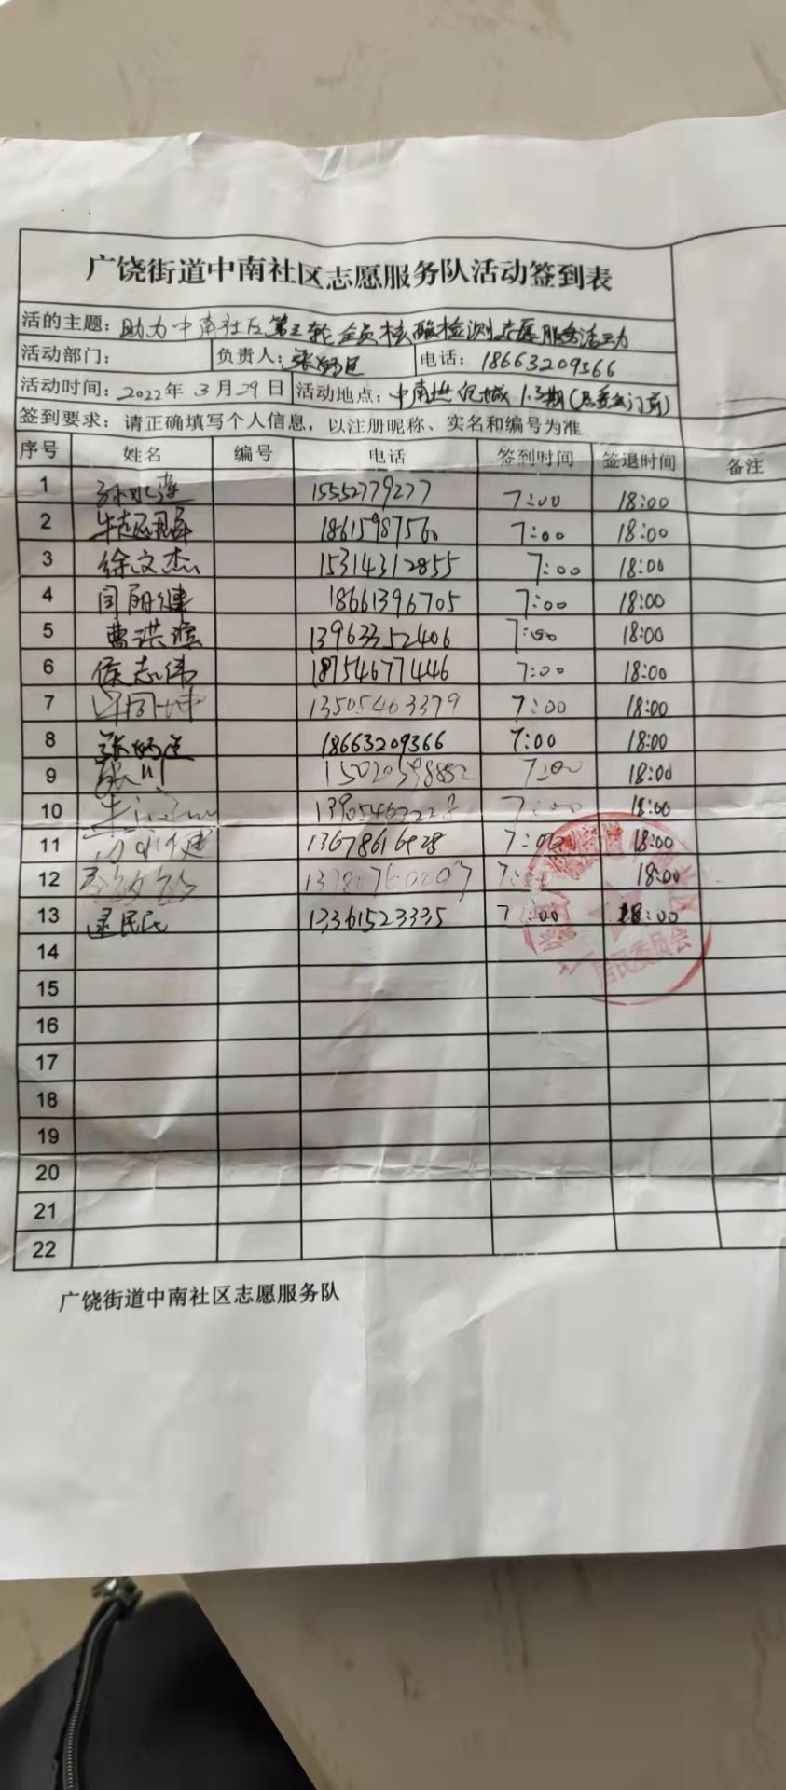 广饶街道中南社区志愿服务队活动签到表
活的主题：助力中南社区第三轮全员核酸检测志愿服务活动
活动部门： 负责人： 电话：18663209366
活动时间：2022年3月29日 活动地点：中南世纪城1.3期(居委会门前)
签到要求：请正确填写个人信息，以注册昵称、实名和编号为准
序号 姓名 编号 电话 签到时间 签退时间 备注
1 15552779277 7:00 18:00
2 18615987560 7:00 18:00
3 徐文杰 15314312855 7:00 18:00
4 18661396705 7:00 18:00
5 曹洪滨 13963352406 7:00 18:00
6 侯志伟 18754677446 7:00 18:00
7 13505463379 7:00 18:00
8 18663209366 7:00 18:00
9 15020598852 7:00 18:00
10 7:00 18:00
11 13678616928 7:00 18:00
12 18:00
13 逯民民 13361523335 7:00 18:00
居民委员会
14
15
16
17
18
19
20
21
22
广饶街道中南社区志愿服务队